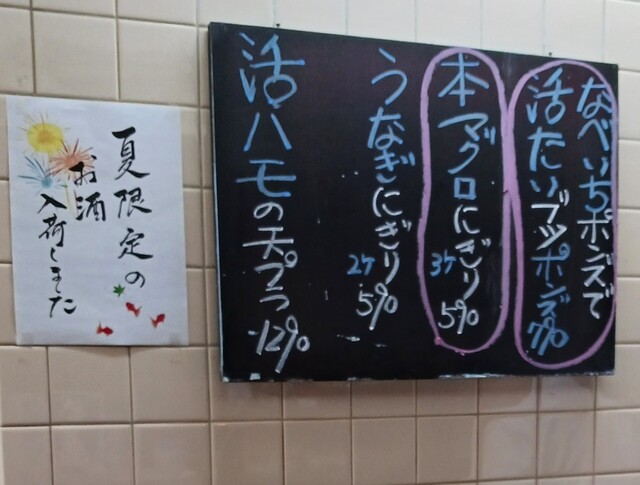 なべいちポンズで
活たいブツポンズ790
本マグロにぎり
3ヶ
590
うなぎにぎり
2ヶ
590
活ハモの天プラ 1290
夏限定の
お酒
入荷しました